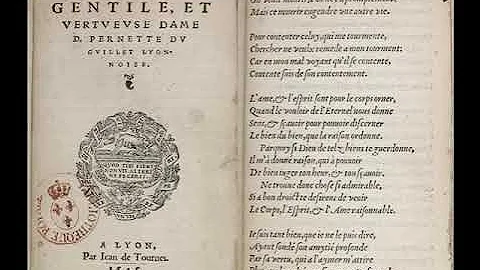 GENTILE, ET
VERTVEVSE DAME
D. PERNETTE DV
GVILLET LYON-
NOISE.
A LYON,
Par Iean de Tournes.
Mais ce mourir engendre une autre vie.
Pour contenter celuy, qui me tourmente,
Chercher ne veulx remede a mon tourment:
Car en mon mal voyant qu'il se contente,
Contente suis de son contentement.
L'ame, & l'esprit sont pour le corps orner,
Quand le vouloir de l'Eternel nous donne
Sens, & sçavoir pour pouvoir discerner
Le bien du bien, que la raison ordonne.
Parquoy si Dieu de telz biens te guerdonne,
Il m'a donné raison, qui a pouvoir
De bien iuger ton heur, & ton sçavoir.
Ne trouve donc chose si admirable,
Si a bon droict te desirent de veoir
Le Corps, l'Esprit, & l'Ame raisonnable.
Ie sçais tant bien, que ie ne le puis dire,
Ayant sondé son amytié profonde
Par sa vertu, qui a l'aymer m'attire